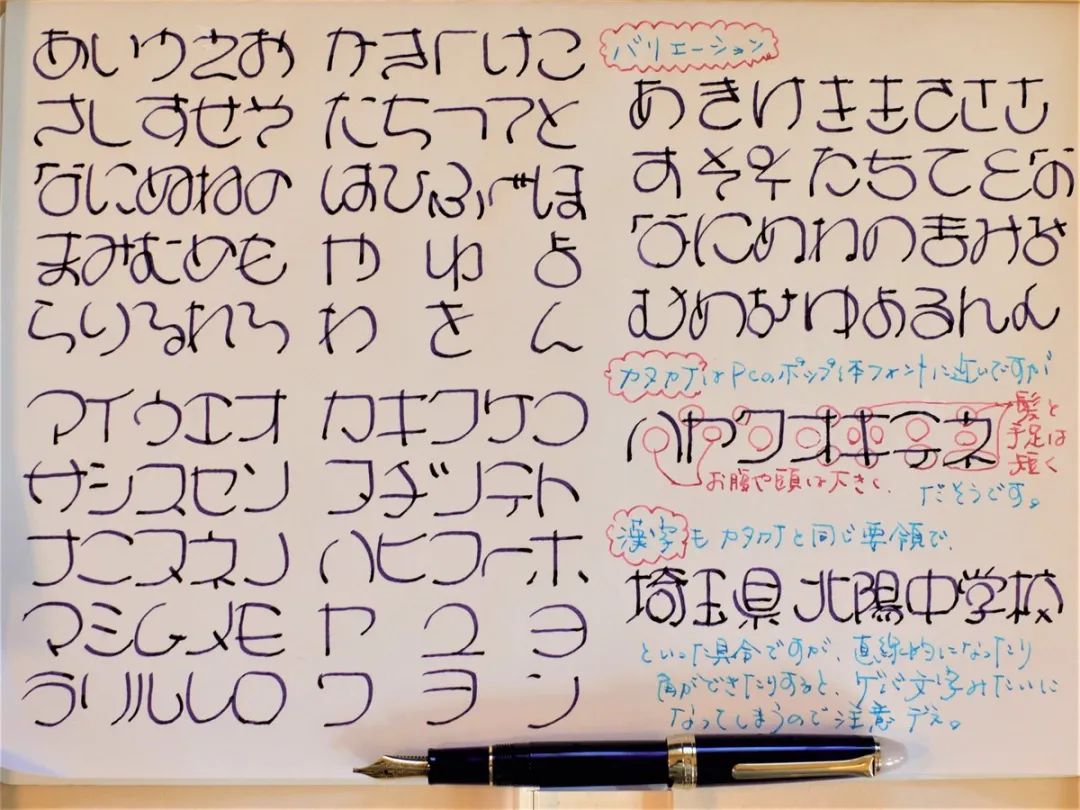 あいうえお かきくけこ
さしすせそ たちつてと
なにぬねの はひふへほ
まみむめも や ゆ よ
らりるれろ わ を ん
アイウエオ カキクケコ
サシスセソ タチツテト
ナニヌネノ ハヒフヘホ
マミムメモ ヤ ユ ヨ
ラリルレロ ワ ヲ ン
バリエーション
あきけききささき
すそそたちてとな
なにぬねのまみ
むめ ゆよるれん
カタカナはPCのポップ体フォントに近いですが
ハヤクオキテネ
髪と
手足は
短く
お腹や頭は大きく、
だそうです。
漢字もカタカナと同じ要領で、
埼玉県 北陽中学校
といった具合ですが、直線的になったり
角ができたりすると、ゲバ文字みたいに
なってしまうので注意デス。